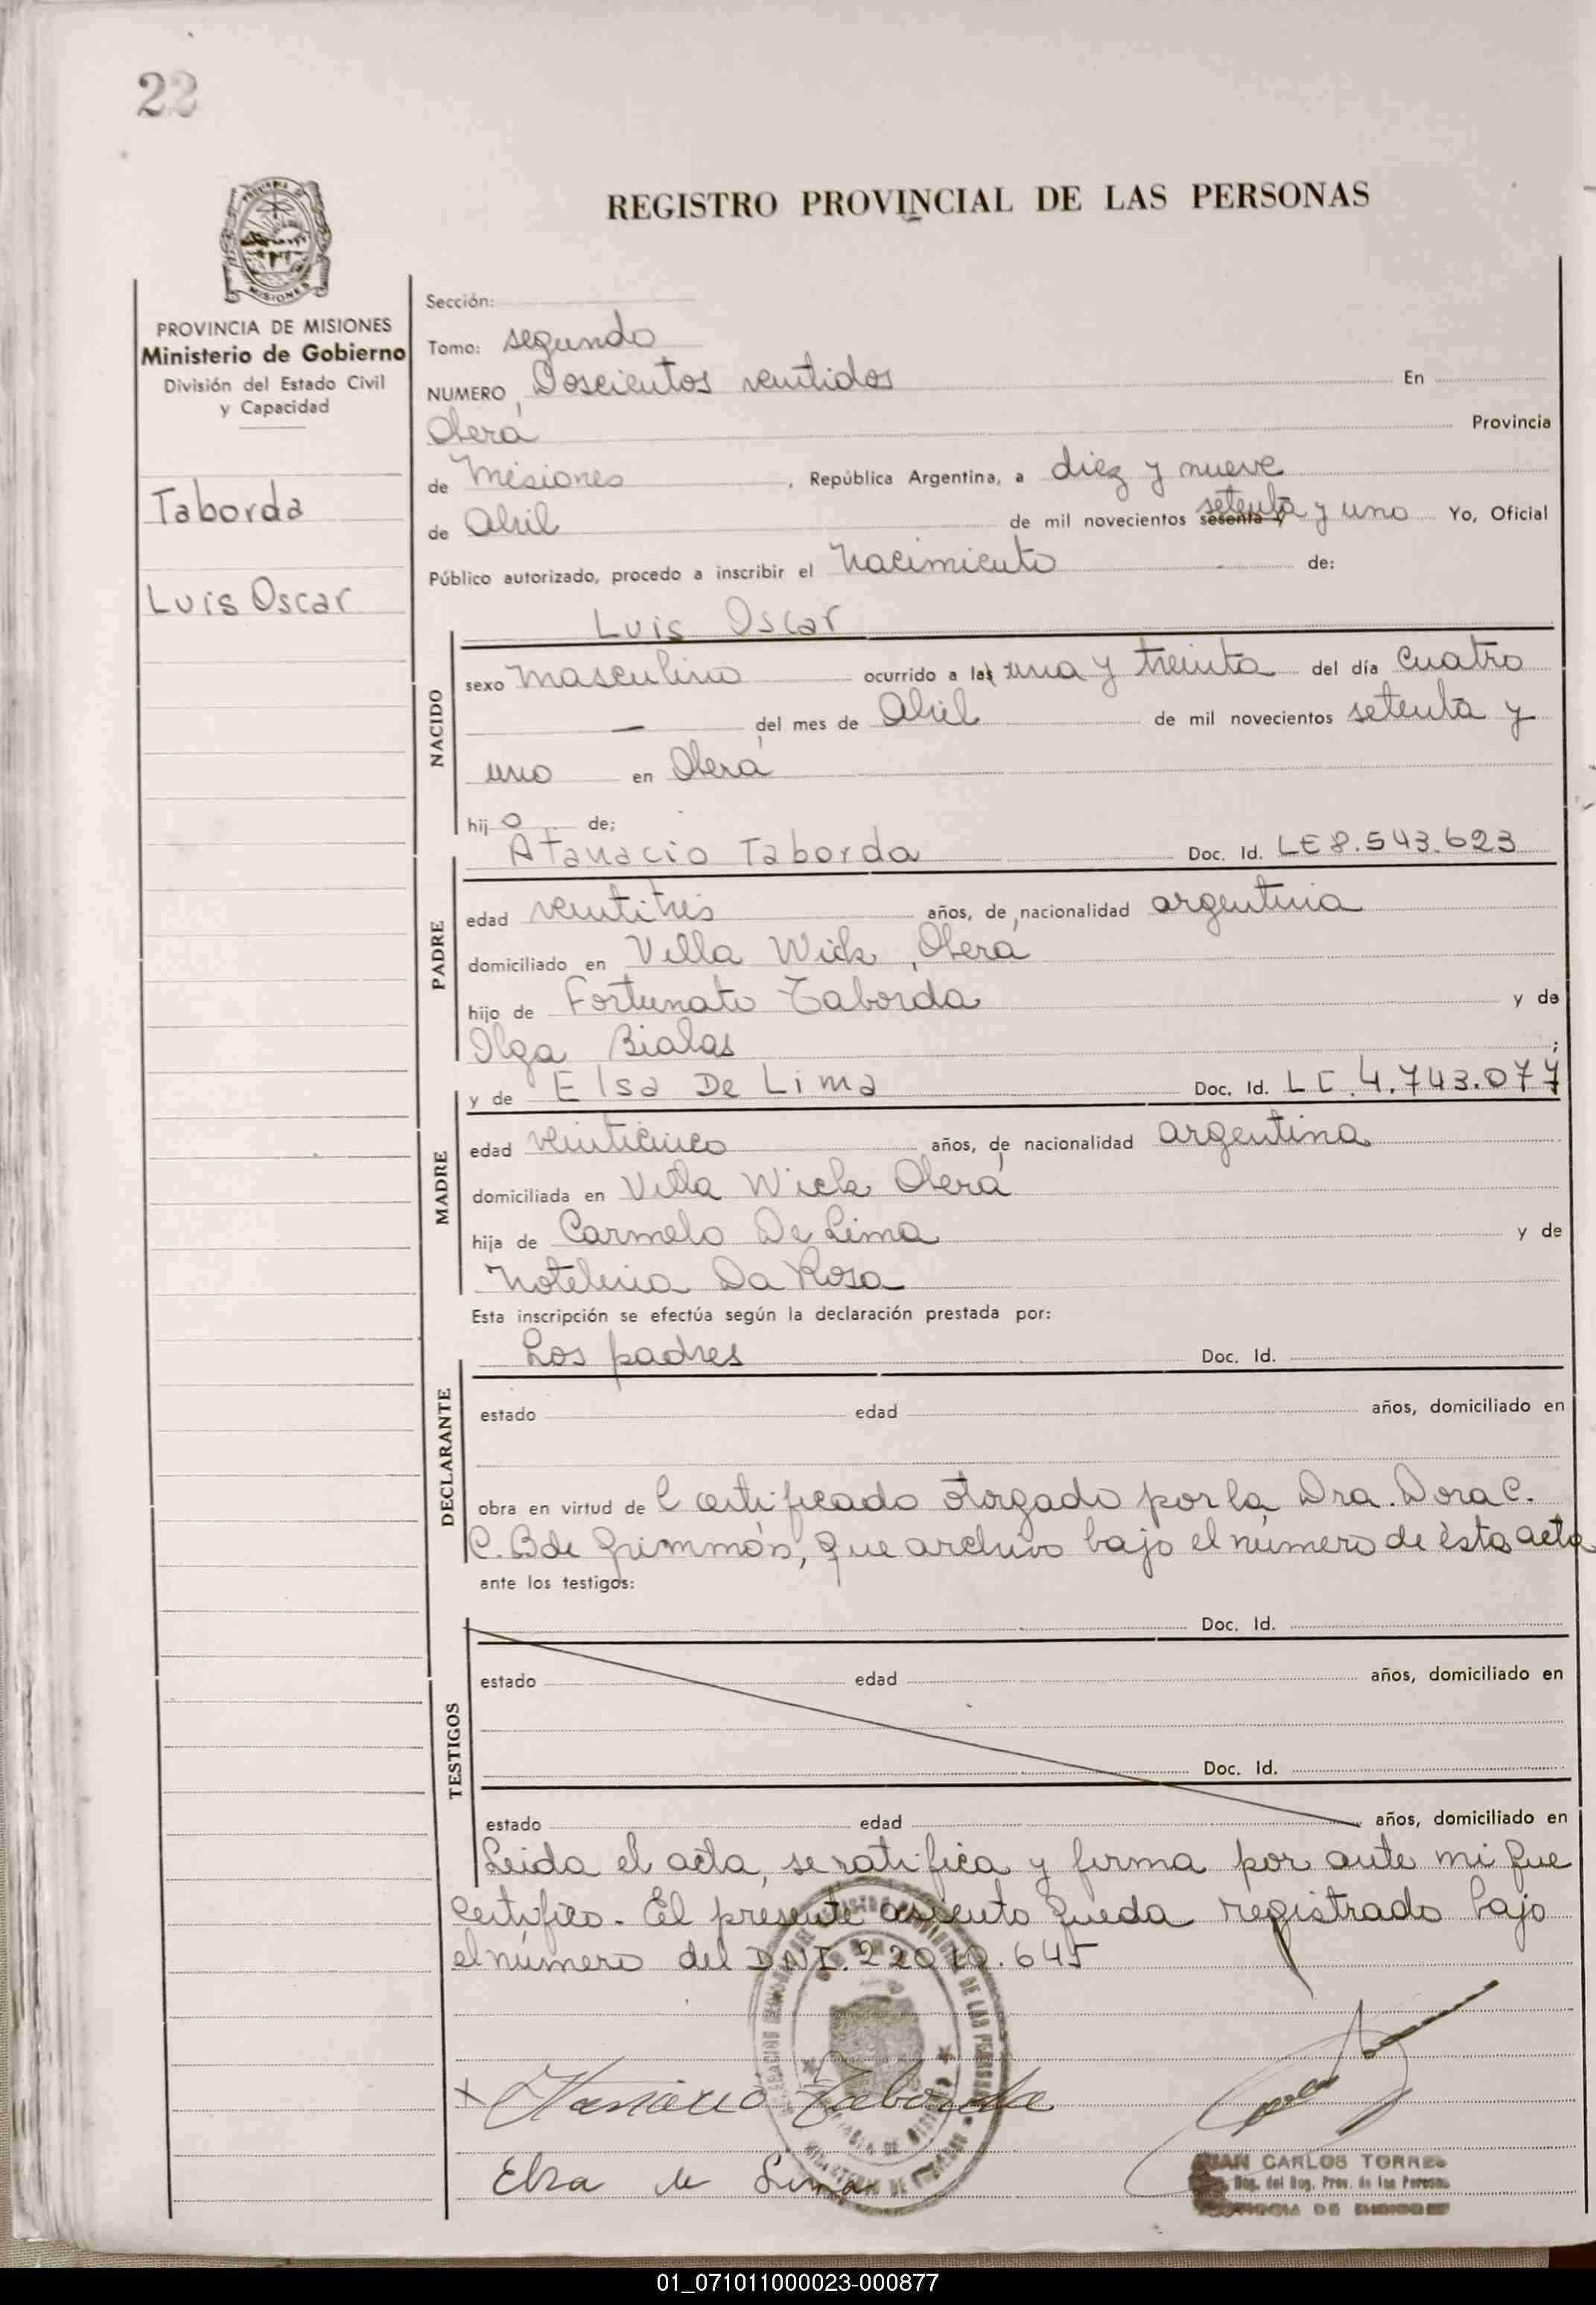 22
REGISTRO PROVINCIAL DE LAS PERSONAS
MISIONES
PROVINCIA DE MISIONES
Ministerio de Gobierno
División del Estado Civil
y Capacidad
Taborda
Luis Oscar
Sección:
Tomo: segundo
NUMERO Doscientos ventidos En
Oberá Provincia
de Misiones , República Argentina, a diez y nueve
de Abril de mil novecientos sesenta y setenta y uno Yo, Oficial
Público autorizado, procedo a inscribir el Nacimiento de:
Luis Oscar
NACIDO
sexo masculino ocurrido a las una y treinta del día cuatro
— del mes de Abril de mil novecientos setenta y
uno en Oberá
hijo de;
PADRE
Atanacio Taborda Doc. Id. LE 8.543.623
edad ventitres años, de nacionalidad argentina
domiciliado en Villa Wick, Oberá
hijo de Fortunato Taborda y de
Olga Bialas ;
MADRE
y de Elsa De Lima Doc. Id. LC. 4.743.077
edad veinticinco años, de nacionalidad argentina
domiciliada en Villa Wick Oberá
hija de Carmelo De Lima y de
Da Rosa
Esta inscripción se efectúa según la declaración prestada por:
DECLARANTE
Los padres Doc. Id.
estado edad años, domiciliado en
obra en virtud de Certificado otorgado por la Dra. Dora C.
C. B de que archivo bajo el número de ésta acta
ante los testigos:
TESTIGOS
Doc. Id.
estado edad años, domiciliado en
Doc. Id.
estado edad años, domiciliado en
Leida el acta, se ratifica y firma por ante mi que
certifico. El presente asiento queda registrado bajo
el número del DNI. 22010.645
Taborda
Elsa de Lima
JUAN CARLOS TORRES
01_071011000023-000877